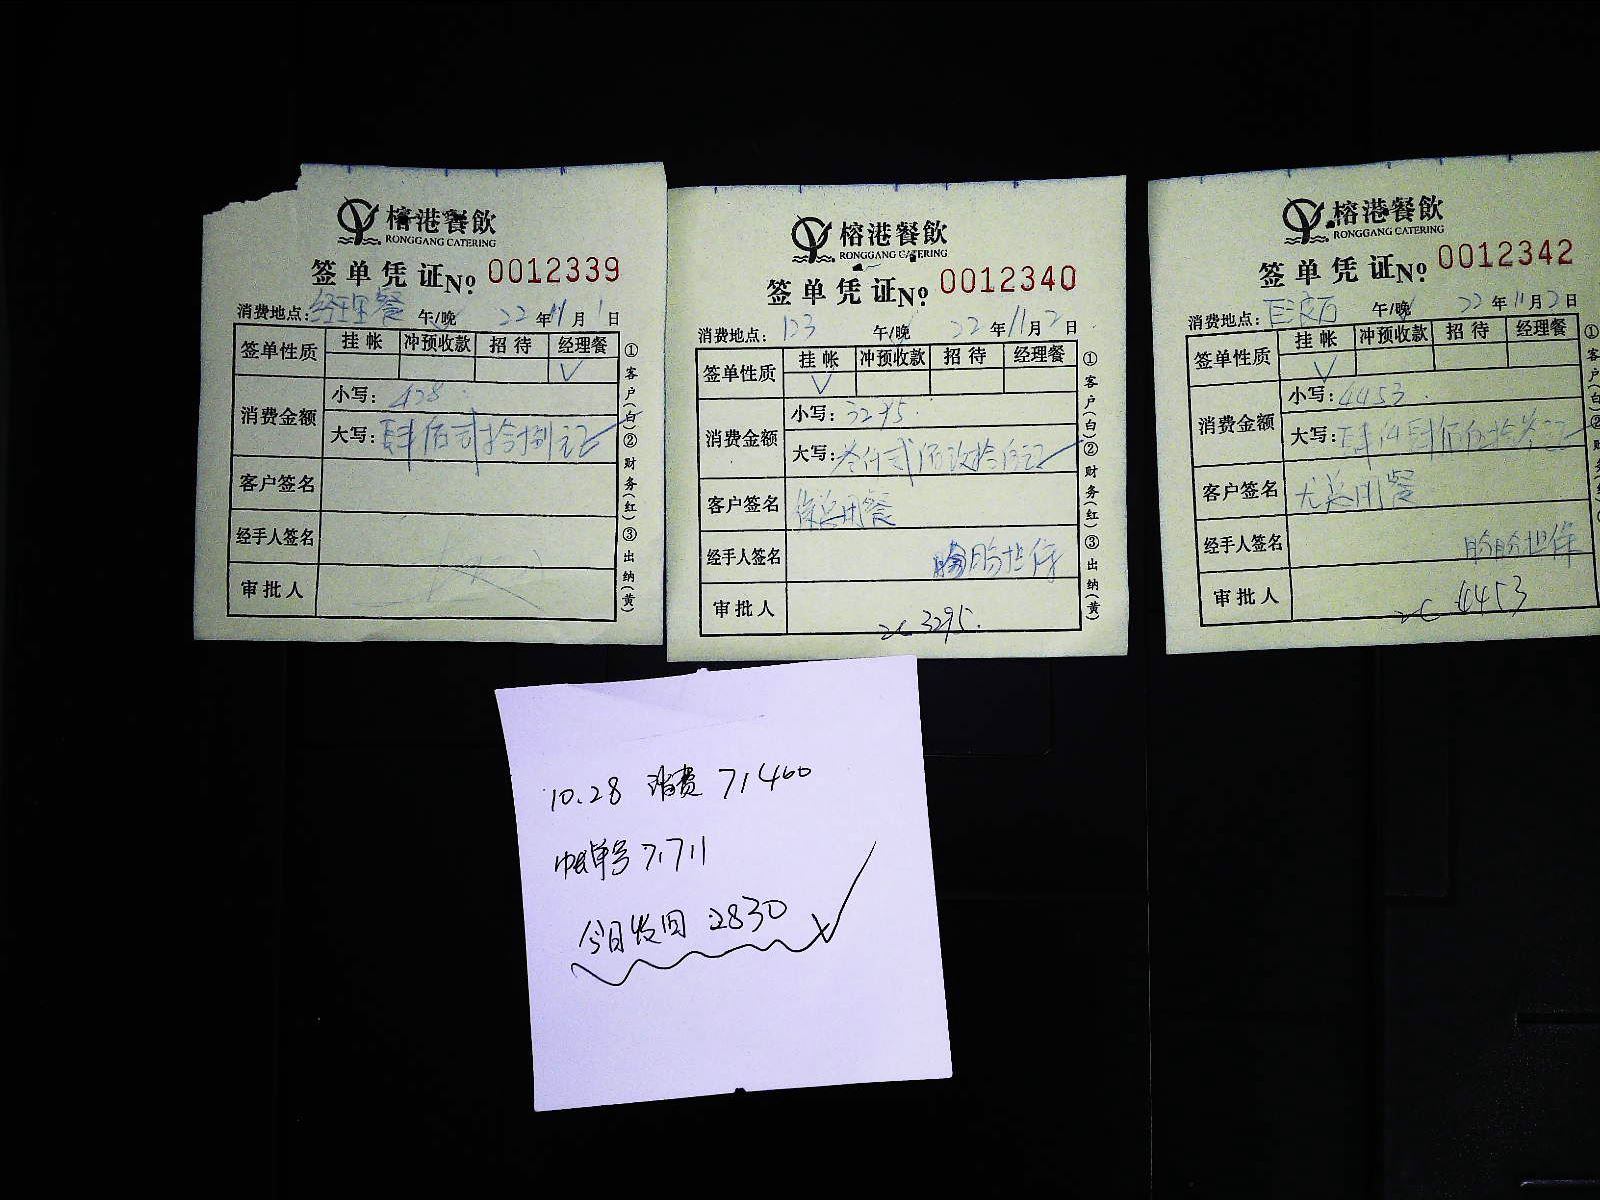 榕港餐飲
RONGGANG CATERING
签单凭证 No. 0012339
消费地点: 经理餐 午/晚 22年11月1日
签单性质 挂帐 冲预收款 招待 经理餐
√
消费金额 小写: 428.
大写: 肆佰贰拾捌元正
客户签名
经手人签名
审批人
①客户(白)②财务(红)③出纳(黄)
榕港餐飲
RONGGANG CATERING
签单凭证 No. 0012340
消费地点: 123 午/晚 22年11月2日
签单性质 挂帐 冲预收款 招待 经理餐
√
消费金额 小写: 3295.
大写: 叁仟贰佰玖拾伍元正
客户签名 总用餐
经手人签名 盼盼担保
审批人 3295.
①客户(白)②财务(红)③出纳(黄)
榕港餐飲
RONGGANG CATERING
签单凭证 No. 0012342
消费地点: 午/晚 22年11月2日
签单性质 挂帐 冲预收款 招待 经理餐
√
消费金额 小写: 4453.
大写: 肆仟肆佰伍拾叁元正
客户签名 尤总用餐
经手人签名 盼盼担保
审批人 4453
①客户(白)②财务(红)
10.28 消费 71460
帐单号 71711
今日发回 2830 √